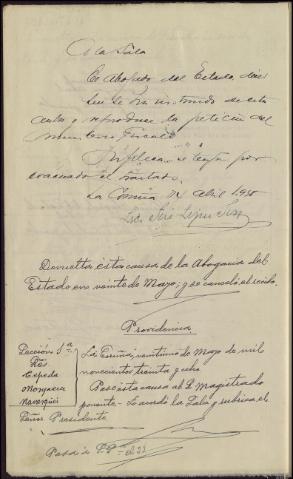 A la Sala
El Abogado del Estado dice
que se ha instruido de esta
causa y reproduce la petición del
Ministerio Fiscal
Suplica se tenga por
evacuado el traslado.
La Coruña abril 1938
Lic. José López
Devuelta esta causa de la Abogacía del
Estado en veinte de Mayo; y se canceló el recibo.
Providencia
Sección 1ª
Sres
Cepeda
Señor Presidente
La Coruña, veintiuno de Mayo de mil
novecientos treinta y ocho
Pase esta causa al Sr. Magistrado
ponente. Lo acordó la Sala y rubrica el
Pasa al el 23